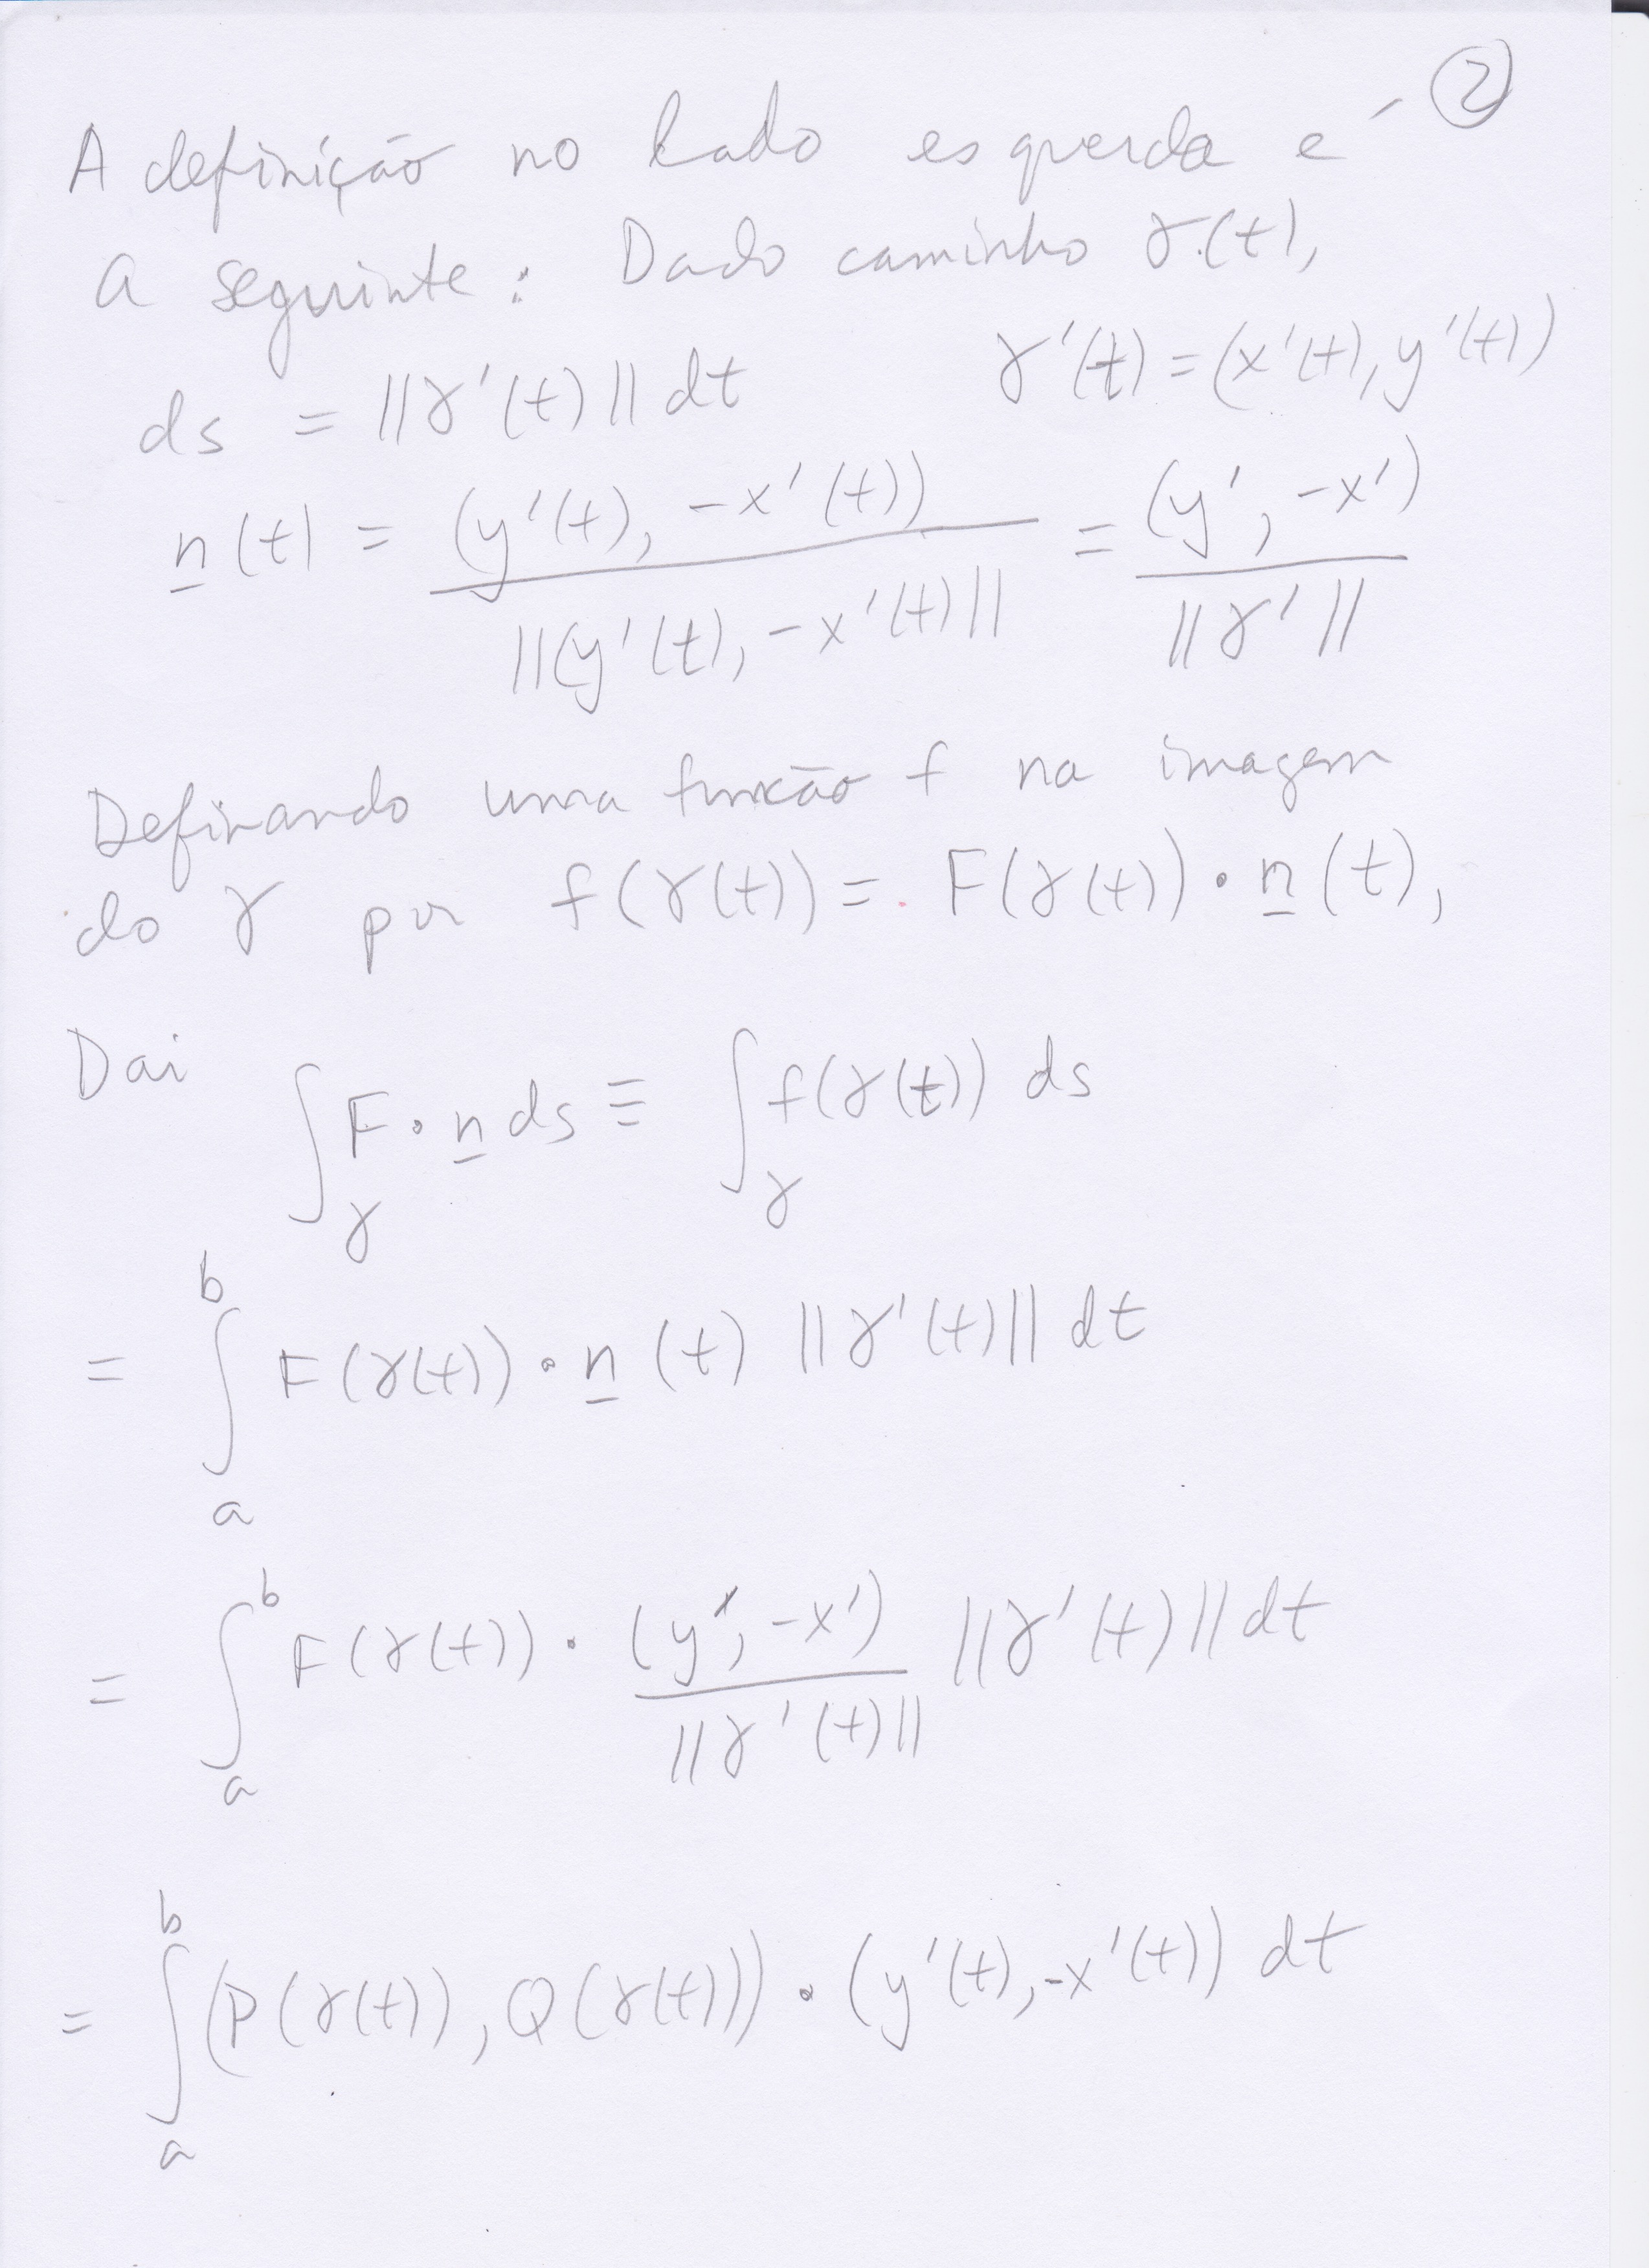 ②
A definição no lado esquerda é
a seguinte: Dado caminho γ(t),
ds = ||γ'(t)|| dt γ'(t) = (x'(t), y'(t))
n(t) = (y'(t), -x'(t)) / ||(y'(t), -x'(t)|| = (y', -x') / ||γ'||
Definando uma função f na imagem
do γ por f(γ(t)) = F(γ(t)) · n(t),
Dai ∫_γ F · n ds ≡ ∫_γ f(γ(t)) ds
= ∫_a^b F(γ(t)) · n(t) ||γ'(t)|| dt
= ∫_a^b F(γ(t)) · (y', -x') / ||γ'(t)|| ||γ'(t)|| dt
= ∫_a^b (P(γ(t)), Q(γ(t))) · (y'(t), -x'(t)) dt